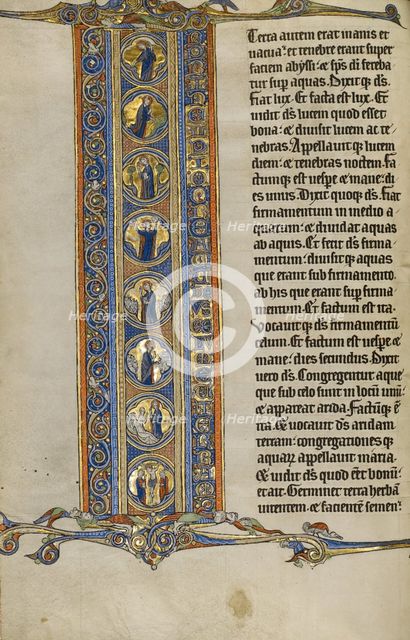 Terra autem erat inanis et
uacua: et tenebre erant super
faciem abyssi: et sp̄s dn̄i fereba
tur sup aquas. Dixit q; ds̄.
Fiat lux. Et facta est lux. Et
uidit ds̄ lucem quod esset
bona: et diuisit lucem ac te
nebras. Appellauit q; lucem
diem: et tenebras noctem. Fa
ctum q; est uespe et mane: di
es unus. Dixit quoq; ds̄. Fiat
firmamentum in medio a
quarum: et diuidat aquas
ab aquis. Et fecit ds̄ firma
mentum: diuisit q; aquas
que erant sub firmamento.
ab his que erant sup firma
mentum. Et factum est ita.
Vocauit q; ds̄ firmamentū
celum. Et factum est uespe et
mane: dies secundus. Dixit
uero ds̄. Congregentur aque
que sub celo sunt in locū unū:
et appareat arida. Factūq; ē
ita. et uocauit ds̄ aridam
terram: congregationes q;
aquaɤ appellauit maria.
Et uidit ds̄ quod eēt bonū:
et ait. Germinet terra herbā
uirentem: et facientē semen:
Heritage
Heritage
Heritage